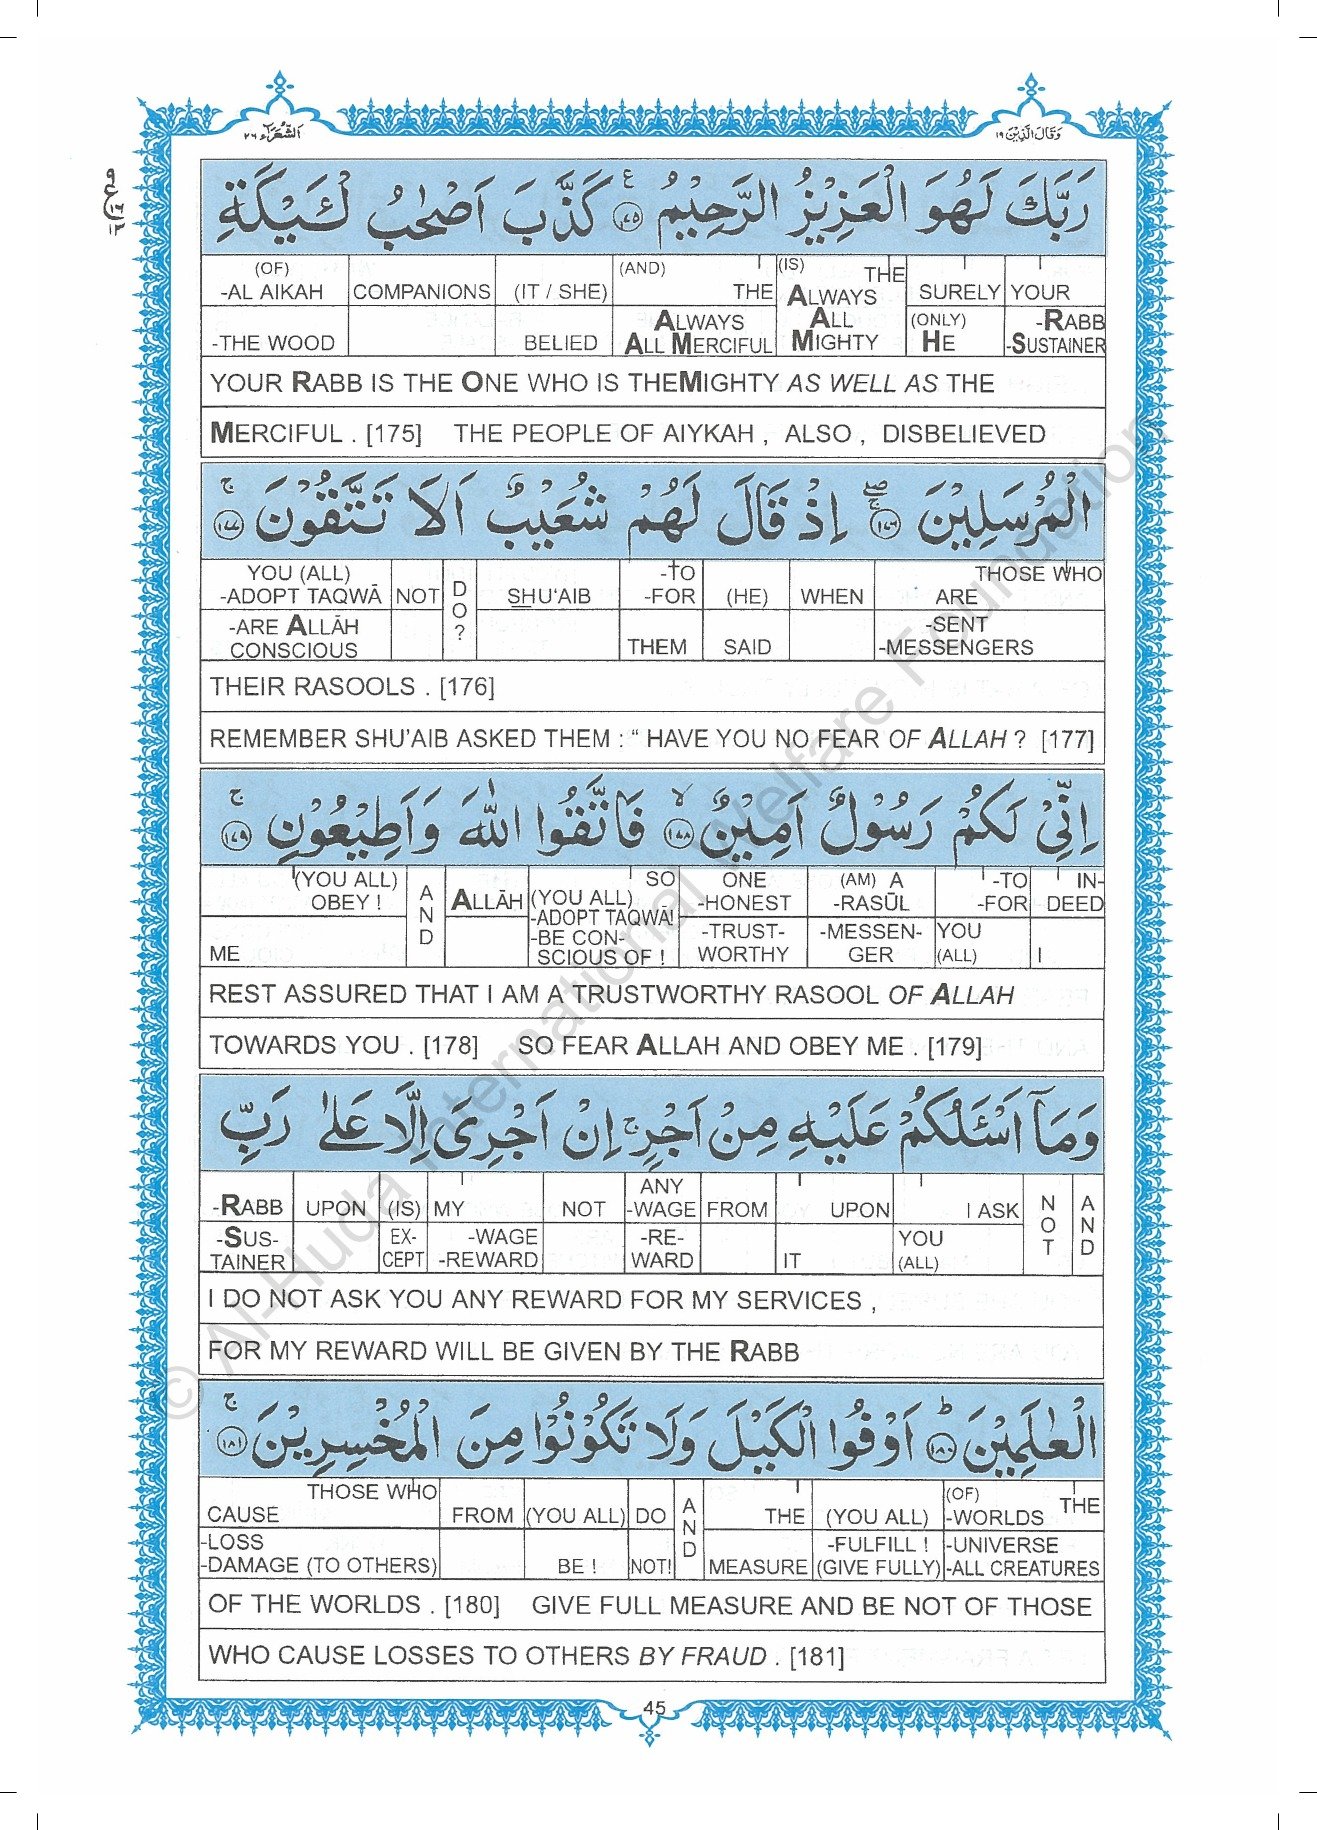 وَقَالَ الَّذِيْنَ ١٩
اَلشُّعَرَآء ٢٦
٩
ع
١٦
١٢
رَبَّكَ لَهُوَ الْعَزِيْزُ الرَّحِيْمُ ع ١٧٥ كَذَّبَ اَصْحٰبُ لْئَيْكَةِ
(OF) -AL AIKAH COMPANIONS (IT / SHE) (AND) THE (IS) THE ALWAYS SURELY YOUR
-THE WOOD BELIED ALWAYS ALL MERCIFUL ALL MIGHTY (ONLY) HE -RABB -SUSTAINER
YOUR RABB IS THE ONE WHO IS THEMIGHTY AS WELL AS THE
MERCIFUL . [175] THE PEOPLE OF AIYKAH , ALSO , DISBELIEVED
الْمُرْسَلِيْنَ ١٧٦ اِذْ قَالَ لَهُمْ شُعَيْبٌ اَلَا تَتَّقُوْنَ ج ١٧٧
YOU (ALL) -ADOPT TAQWĀ NOT DO? SHU‘AIB -TO -FOR (HE) WHEN THOSE WHO ARE
-ARE ALLĀH CONSCIOUS THEM SAID -SENT -MESSENGERS
THEIR RASOOLS . [176]
REMEMBER SHU’AIB ASKED THEM : “ HAVE YOU NO FEAR OF ALLAH ? [177]
اِنِّيْ لَكُمْ رَسُوْلٌ اَمِيْنٌ لا ١٧٨ فَاتَّقُوا اللّٰهَ وَاَطِيْعُوْنِ ج ١٧٩
(YOU ALL) OBEY ! AND ALLĀH SO (YOU ALL) -ADOPT TAQWĀ! ONE -HONEST (AM) A -RASŪL -TO -FOR IN-DEED
ME -BE CON-SCIOUS OF ! -TRUST-WORTHY -MESSEN-GER YOU (ALL) I
REST ASSURED THAT I AM A TRUSTWORTHY RASOOL OF ALLAH
TOWARDS YOU . [178] SO FEAR ALLAH AND OBEY ME . [179]
وَمَآ اَسْئَلُكُمْ عَلَيْهِ مِنْ اَجْرٍ ج اِنْ اَجْرِىَ اِلَّا عَلٰى رَبِّ
-RABB UPON (IS) MY NOT ANY -WAGE FROM UPON I ASK NOT AND
-SUS-TAINER EX-CEPT -WAGE -REWARD -RE-WARD IT YOU (ALL)
I DO NOT ASK YOU ANY REWARD FOR MY SERVICES ,
FOR MY REWARD WILL BE GIVEN BY THE RABB
الْعٰلَمِيْنَ ط ١٨٠ اَوْفُوا الْكَيْلَ وَلَا تَكُوْنُوْا مِنَ الْمُخْسِرِيْنَ ج ١٨١
THOSE WHO CAUSE FROM (YOU ALL) DO AND THE (YOU ALL) (OF) THE -WORLDS
-LOSS -DAMAGE (TO OTHERS) BE ! NOT! MEASURE -FULFILL ! (GIVE FULLY) -UNIVERSE -ALL CREATURES
OF THE WORLDS . [180] GIVE FULL MEASURE AND BE NOT OF THOSE
WHO CAUSE LOSSES TO OTHERS BY FRAUD . [181]
45
© Al-Huda International Welfare Foundation